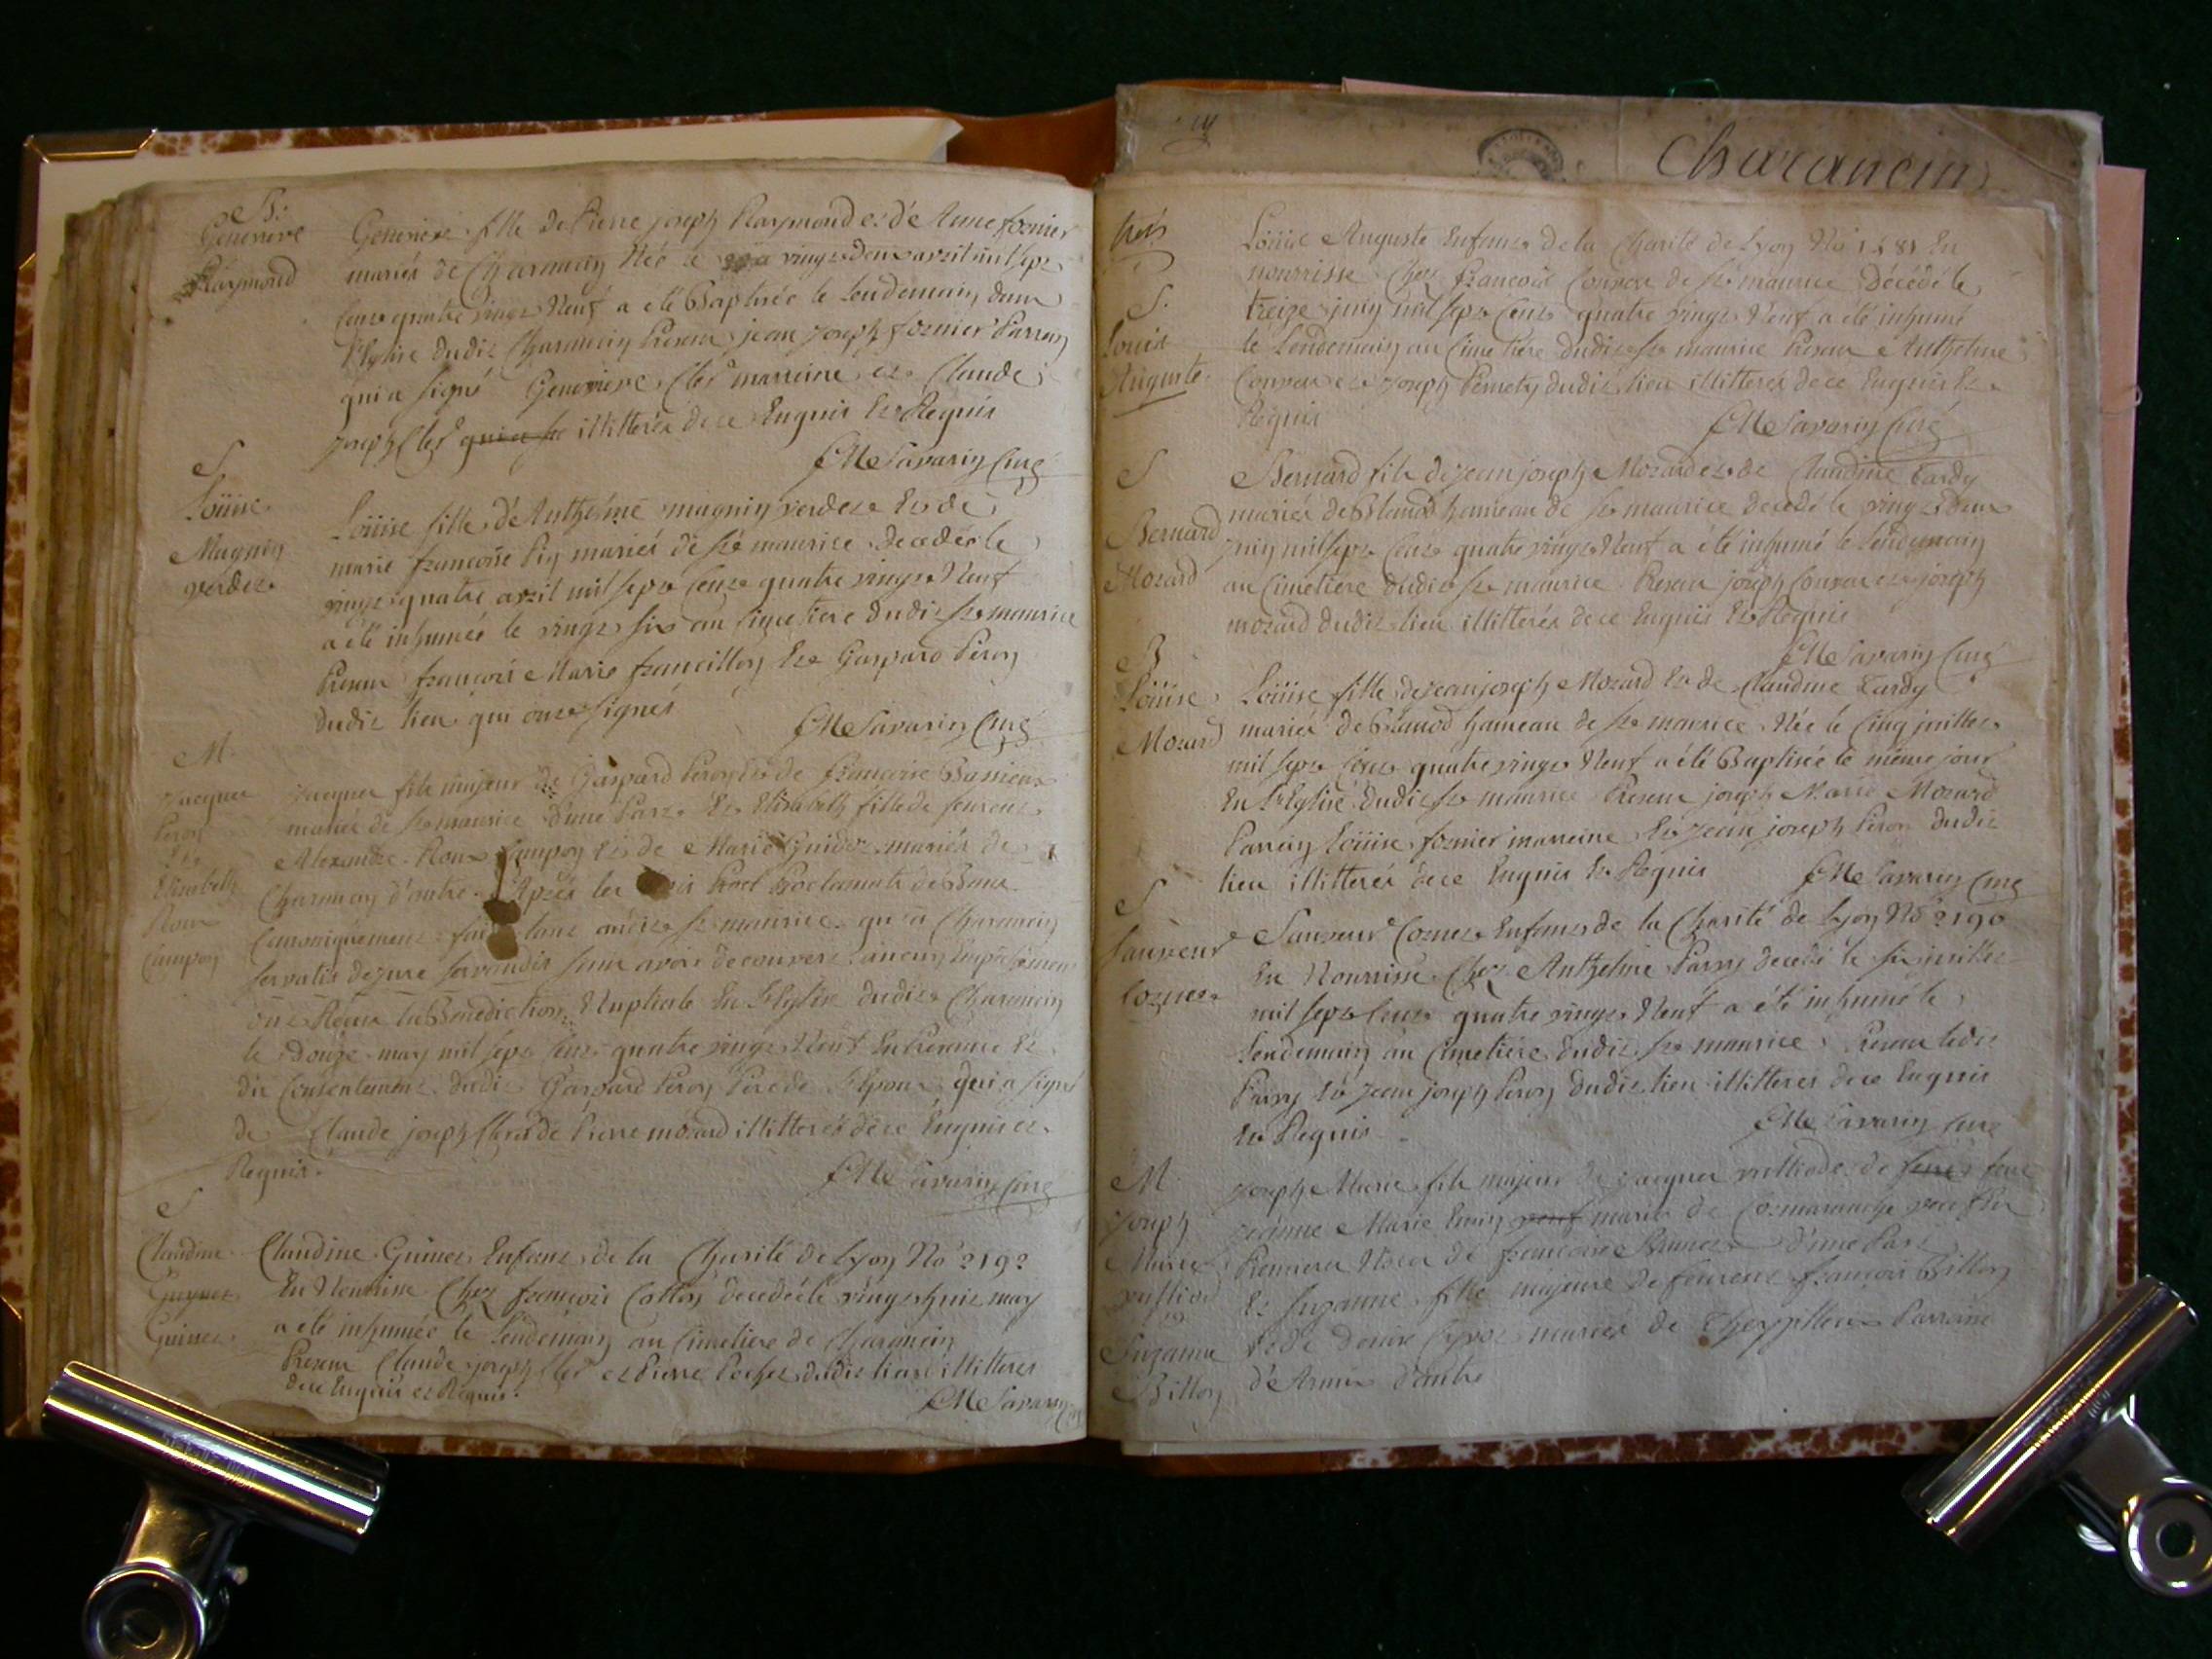 B.
Genevieve
Raymond
Genevieve fille de Pierre joseph Raymond et d'Anne fornier
mariés de Charancin Née le vingt deux avril mil sept
cent quatre vingt Neuf a été Baptisée le lendemain dans
l'Eglise dudit Charancin Present jean joseph fornier Parrain
qui a signé Genevieve Cler marreine et Claude
joseph Cler qui a illitterés de ce Enquis Et Requis
Savarin Curé
S.
Loüise
Magnin
verdet
Loüise fille d'Anthelme magnin verdet Et de
marie francoise Pin mariés de St maurice decedée le
vingt quatre avril mil sept Cent quatre vingt Neuf
a été inhumée le vingt six au Cimetiere dudit St maurice
Present francois Marie francillon Et Gaspard Peron
dudit lieu qui ont signés
Savarin Curé
M.
Jacques
Peron
Et
Elisabeth
Roux
Campon
Jacques fils majeur de Gaspard Peron Et de francoise
mariés de St maurice d'une Part Et Elisabeth fille de feu
Alexandre Roux Campon Et de Marie Guidet mariés de
Charancin d'autre Après les Proclamats de Bans
Canoniquement fait tant audit St maurice qu'a Charancin
servatis de jure servandis sans avoir decouvert aucun Empechement
ont Reçu la Benediction Nuptiale En l'Eglise dudit Charancin
le douze may mil sept Cent quatre vingt Neuf En Presence Et
du Consentement dudit Gaspard Peron Pere de l'Epoux qui a signé
de Claude joseph Cler de Pierre mozard illitterés de ce Enquis et
Requis.
Savarin Curé
S
Claudine
Guinet
Claudine Guinet Enfant de la Charité de Lyon No 2192
En Nourrisse Chez francois Cotton decedée le vingt huit may
a été inhumée le lendemain au Cimetiere de Charancin
Present Claude joseph Cler et Pierre dudit lieu illitteres
de ce Enquis et Requis.
Savarin
Charancin
trois
S.
Louis
Auguste
Loüis Auguste Enfant de la Charité de Lyon No En
nourrisse Chez francois de St maurice Décédé le
treize juin mil sept Cent quatre vingt Neuf a été inhumé
le lendemain au Cimetiere dudit St maurice Present Anthelme
et joseph dudit lieu illitterés de ce Enquis Et
Requis
Savarin Curé
S
Bernard
Mozard
Bernard fils de jean joseph Mozard et de Claudine Tardy
mariés de hameau de St maurice decedé le vingt deux
juin mil sept Cent quatre vingt Neuf a été inhumé le lendemain
au Cimetiere dudit St maurice Present joseph et joseph
mozard dudit lieu illitterés de ce Enquis Et Requis
Savarin Curé
B
Loüise
Mozard
Loüise fille de jean joseph Mozard Et de Claudine Tardy
mariés de hameau de St maurice Née le Cinq juillet
mil sept Cent quatre vingt Neuf a été Baptisée le même jour
En l'Eglise dudit St maurice Present joseph Marie Mozard
Parrain Loüise fornier marreine Et jean joseph Peron dudit
lieu illitterés de ce Enquis Et Requis
Savarin Curé
S
Laurent
Cornet
Laurent Cornet Enfant de la Charité de Lyon No 2190
En Nourrisse Chez Anthelme Parry decedé le six juillet
mil sept Cent quatre vingt Neuf a été inhumé le
lendemain au Cimetiére dudit St maurice Present ledit
Parry Et jean joseph Peron dudit lieu illitterés de ce Enquis
Et Requis
Savarin Curé
M
Joseph
Marie
Et
Suzanne
Billon
Joseph Marie fils majeur de jacques et de feue
jeanne Marie mariés de Cormaranche veuf En
Premieres Noces de francoise d'une Part
Et Suzanne fille majeure de Laurent francois Billon
Et de mariés de Paroisse
d'Armix d'autre